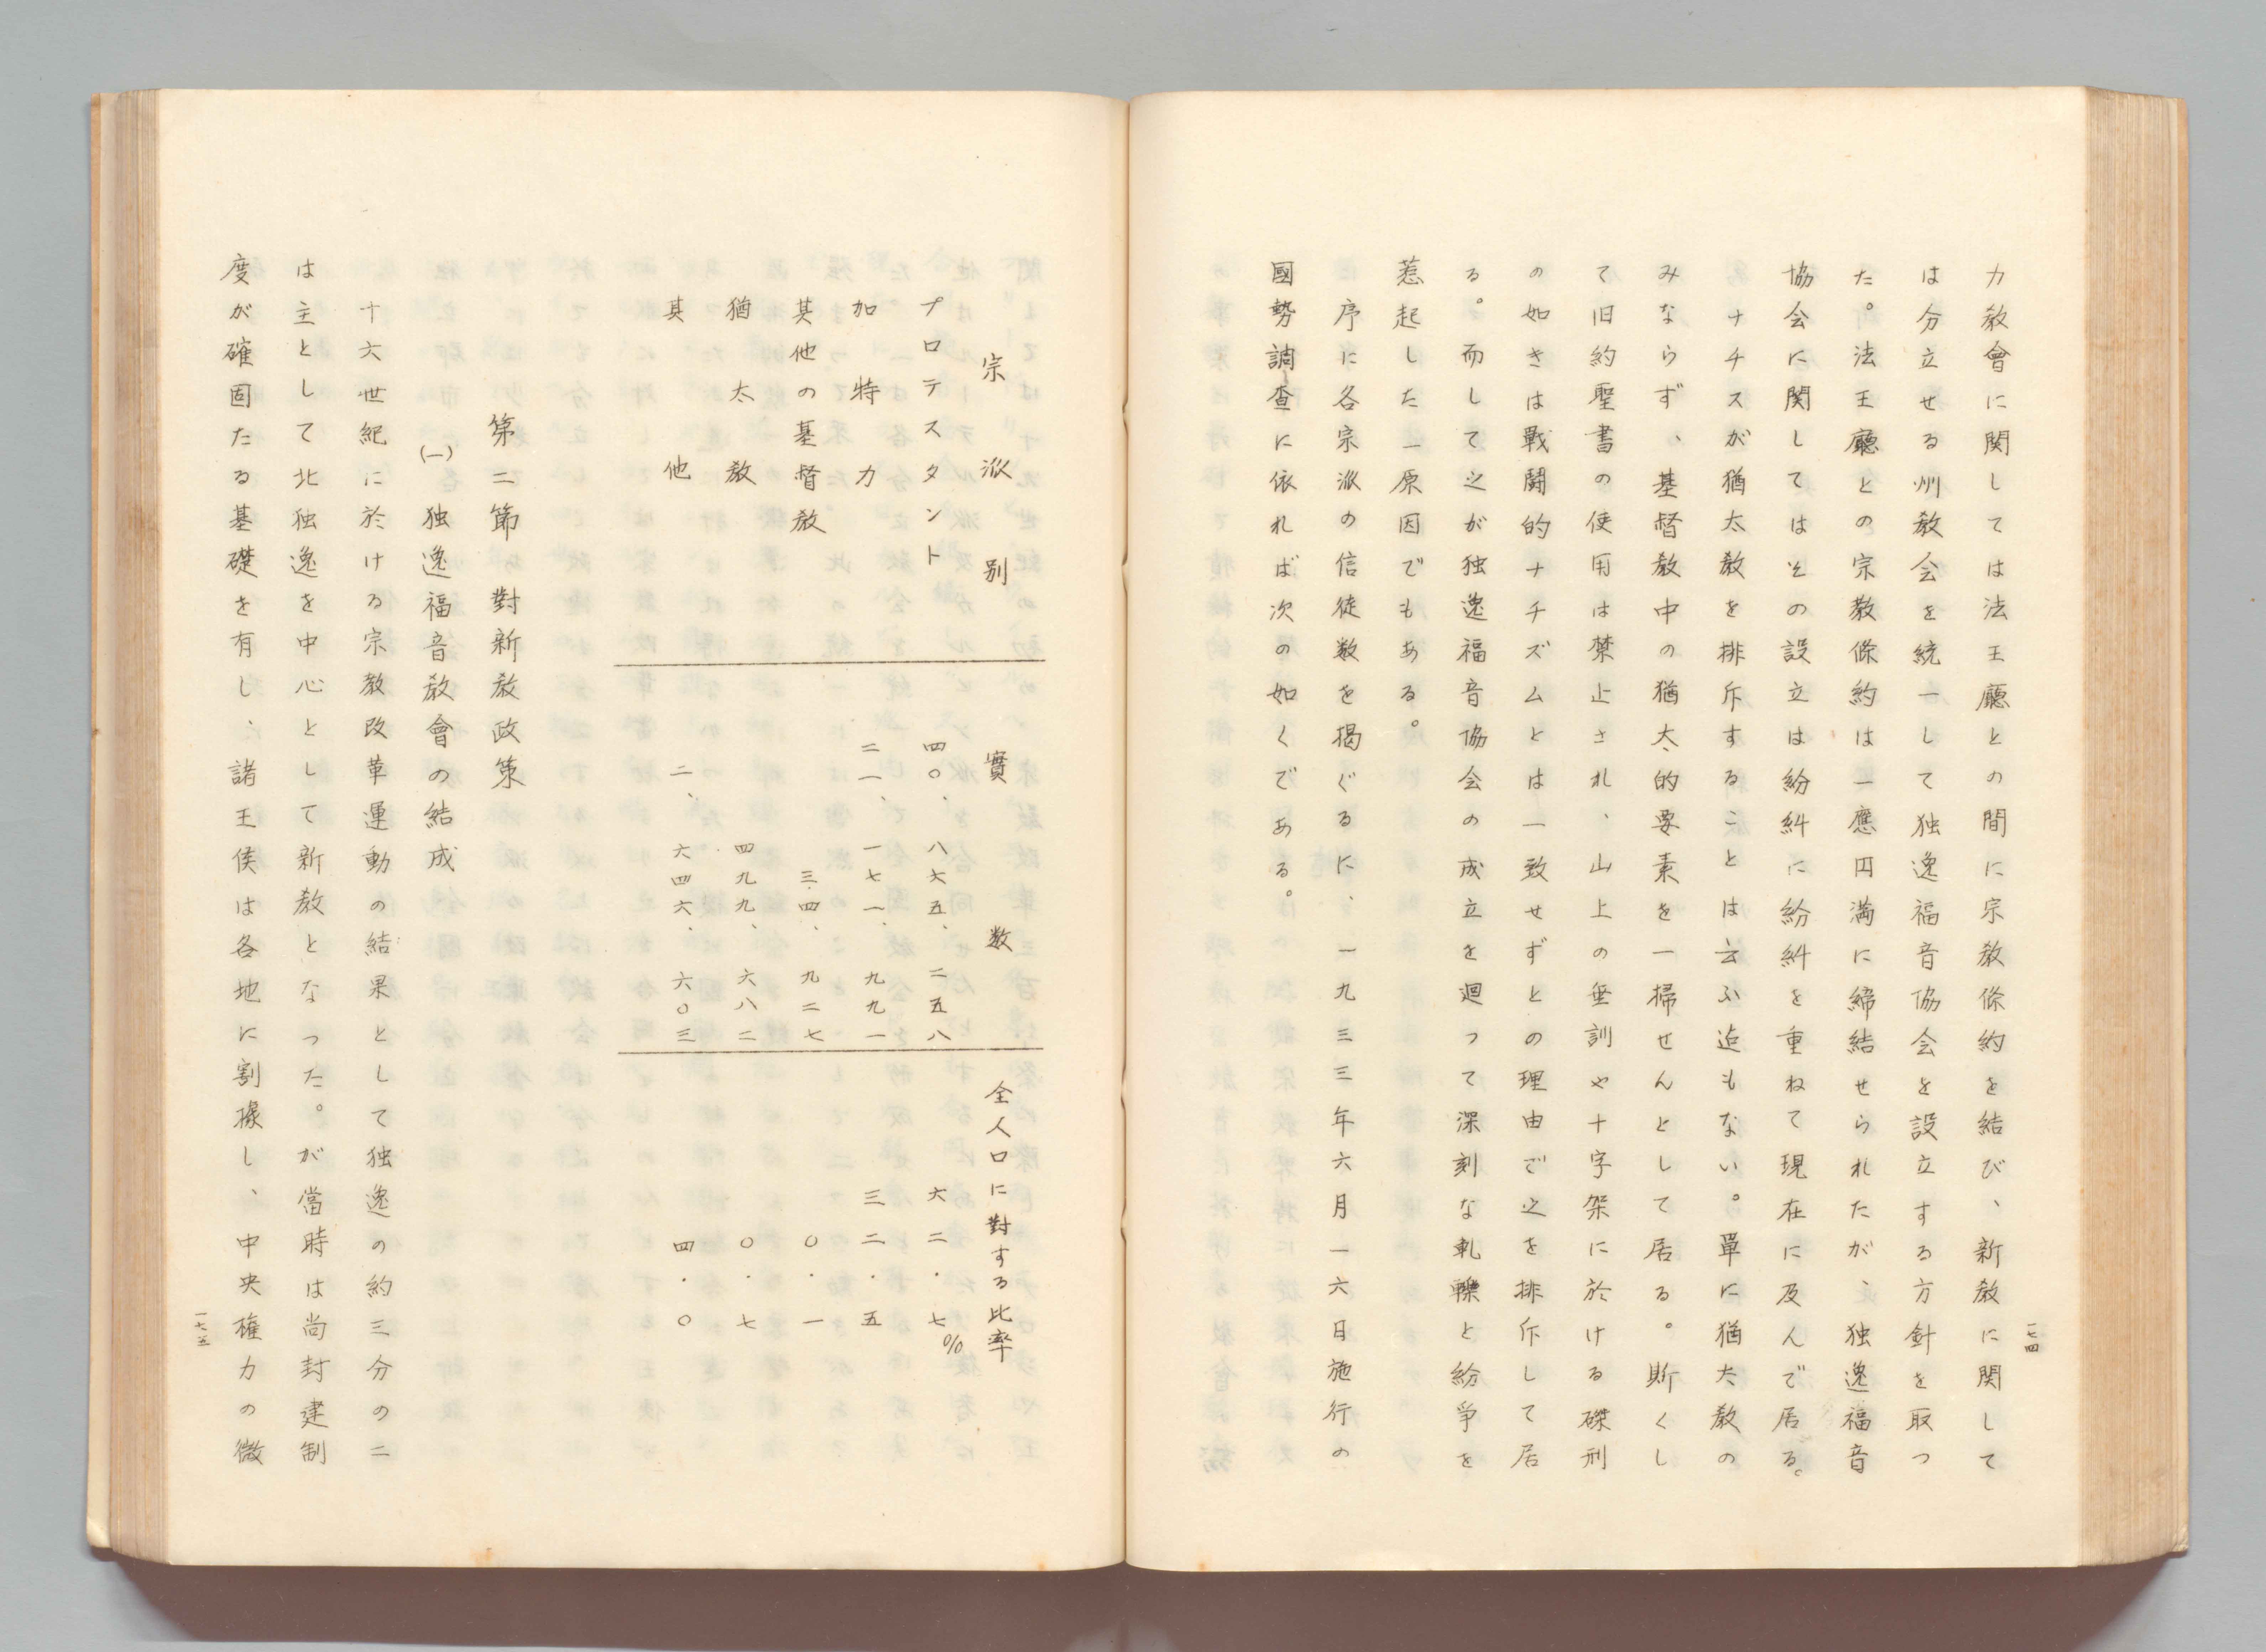 一七四
力教會に関しては法王廳との間に宗教條約を結び、新教に関して
は分立せる州教会を統一して独逸福音協会を設立する方針を取つ
た。法王廳との宗教條約は一應円満に締結せられたが、独逸福音
協会に関してはその設立は紛糾に紛糾を重ねて現在に及んで居る。
ナチスが猶太教を排斥することは云ふ迄もない。單に猶太教の
みならず、基督教中の猶太的要素を一掃せんとして居る。斯くし
て旧約聖書の使用は禁止され、山上の垂訓や十字架に於ける磔刑
の如きは戰闘的ナチズムとは一致せずとの理由で之を排斥して居
る。而して之が独逸福音協会の成立を廻つて深刻な軋轢と紛爭を
惹起した一原因でもある。
序に各宗派の信徒数を揭ぐるに、一九三三年六月一六日施行の
國勢調査に依れば次の如くである。
宗派別 實数 全人口に對する比率
プロテスタント 四〇、八六五、二五八 六二・七%
加特力 二一、一七一、九九一 三二・五
其他の基督教 三四、九二七 〇・一
猶太教 四九九、六八二 〇・七
其他 二、六四六、六〇三 四・〇
第二節 對新教政策
(一) 独逸福音教會の結成
十六世紀に於ける宗教改革運動の結果として独逸の約三分の二
は主として北独逸を中心として新教となつた。が當時は尚封建制
度が確固たる基礎を有し、諸王侯は各地に割據し、中央権力の微
一七五